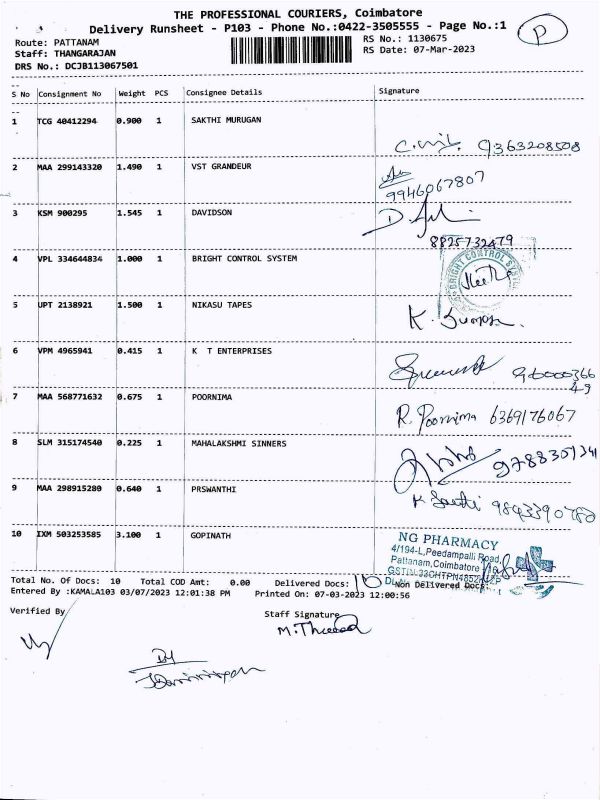 THE PROFESSIONAL COURIERS, Coimbatore
Delivery Runsheet - P103 - Phone No.:0422-3505555 - Page No.:1
P
Route: PATTANAM
RS No.: 1130675
Staff: THANGARAJAN
RS Date: 07-Mar-2023
DRS No.: DCJB113067501
S No Consignment No Weight PCS Consignee Details Signature
1 TCG 40412294 0.900 1 SAKTHI MURUGAN
9363208508
2 MAA 299143320 1.490 1 VST GRANDEUR
9946067807
3 KSM 900295 1.545 1 DAVIDSON
8825732479
4 VPL 334644834 1.000 1 BRIGHT CONTROL SYSTEM
BRIGHT CONTROL
5 UPT 2138921 1.500 1 NIKASU TAPES
6 VPM 4965941 0.415 1 K T ENTERPRISES
96000366
49
7 MAA 568771632 0.675 1 POORNIMA
R. Poornima 6369176067
8 SLM 315174540 0.225 1 MAHALAKSHMI SINNERS
9788351341
9 MAA 298915280 0.640 1 PRSWANTHI
10 IXM 503253585 3.100 1 GOPINATH
NG PHARMACY
4/194-L, Peedampalli Road,
Pattanam, Coimbatore
Total No. Of Docs: 10 Total COD Amt: 0.00 Delivered Docs: 10 Non Delivered Docs:
Entered By :KAMALA103 03/07/2023 12:01:38 PM Printed On: 07-03-2023 12:00:56
Verified By
Staff Signature